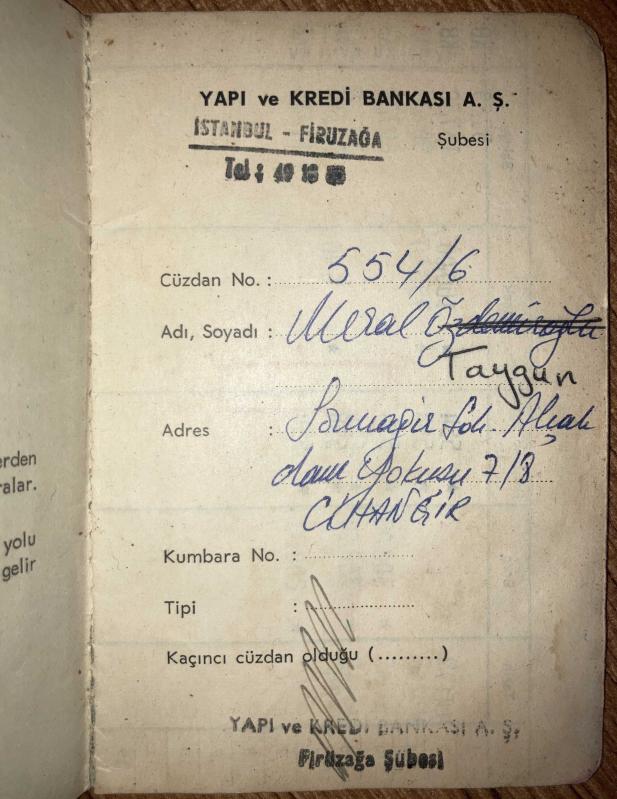 YAPI ve KREDİ BANKASI A. Ş.
İSTANBUL - FİRUZAĞA Şubesi
Tel : 49 18
Cüzdan No. : 554/6
Adı, Soyadı : Meral Özdemiroğlu
Taygun
Adres : Sormagir Sok. Alçak
dam Yokuşu 7/3
CİHANGİR
Kumbara No. :
Tipi :
Kaçıncı cüzdan olduğu (.........)
YAPI ve KREDİ BANKASI A. Ş.
Firüzağa Şübesi
erden
alar.
yolu
gelir